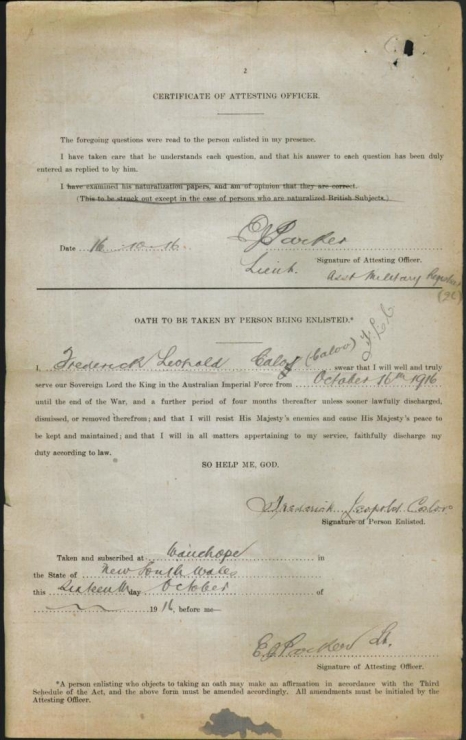 2
CERTIFICATE OF ATTESTING OFFICER.
The foregoing questions were read to the person enlisted in my presence.
I have taken care that he understands each question, and that his answer to each question has been duly
entered as replied to by him.
I have examined his naturalization papers, and am of opinion that they are correct.
(This to be struck out except in the case of persons who are naturalized British Subjects.)
Date 16-10-16. Parker
Lieut. Signature of Attesting Officer.
Asst Military
OATH TO BE TAKEN BY PERSON BEING ENLISTED.*
I, Frederick Leopold (Calov) swear that I will well and truly
serve our Sovereign Lord the King in the Australian Imperial Force from October 16th 1916
until the end of the War, and a further period of four months thereafter unless sooner lawfully discharged,
dismissed, or removed therefrom; and that I will resist His Majesty's enemies and cause His Majesty's peace to
be kept and maintained; and that I will in all matters appertaining to my service, faithfully discharge my
duty according to law.
SO HELP ME, GOD.
Frederick Leopold Calov
Signature of Person Enlisted.
Taken and subscribed at Wauchope in
the State of New South Wales
this Sixteenth day October of
1916, before me—
Lt.
Signature of Attesting Officer.
*A person enlisting who objects to taking an oath may make an affirmation in accordance with the Third
Schedule of the Act, and the above form must be amended accordingly. All amendments must be initiated by the
Attesting Officer.